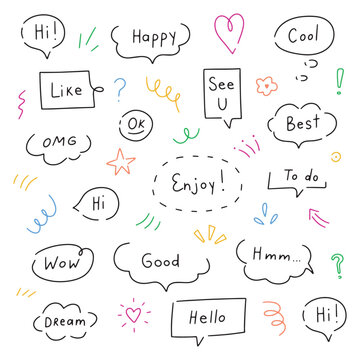 Hi!
Happy
Cool
Like
?
See
U
!
OK
Best
OMG
Enjoy!
To do
Hi
Wow
Good
Hmm...
?
Dream
Hello
Hi!
!